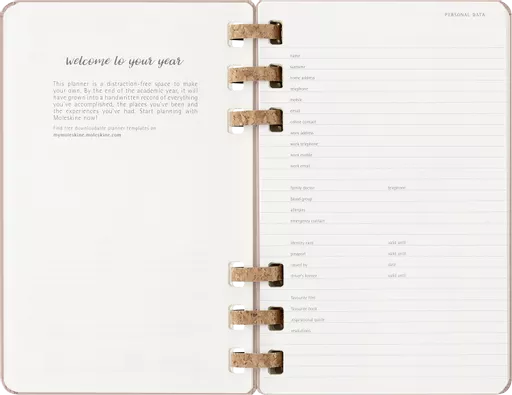 welcome to your year
This planner is a distraction-free space to make
your own. By the end of the academic year, it will
have grown into a handwritten record of everything
you've accomplished, the places you've been and
the experiences you've had. Start planning with
Moleskine now!
Find free downloadable planner templates on
mymoleskine.moleskine.com
PERSONAL DATA
name
home address
telephone
mobile
email
online contact
work address
work telephone
work mobile
work email
family doctor
telephone
blood group
allergies
emergency contact
identity card
valid until
passport
valid until
issued by
date
driver's licence
valid until
favourite film
favourite book
inspirational quote